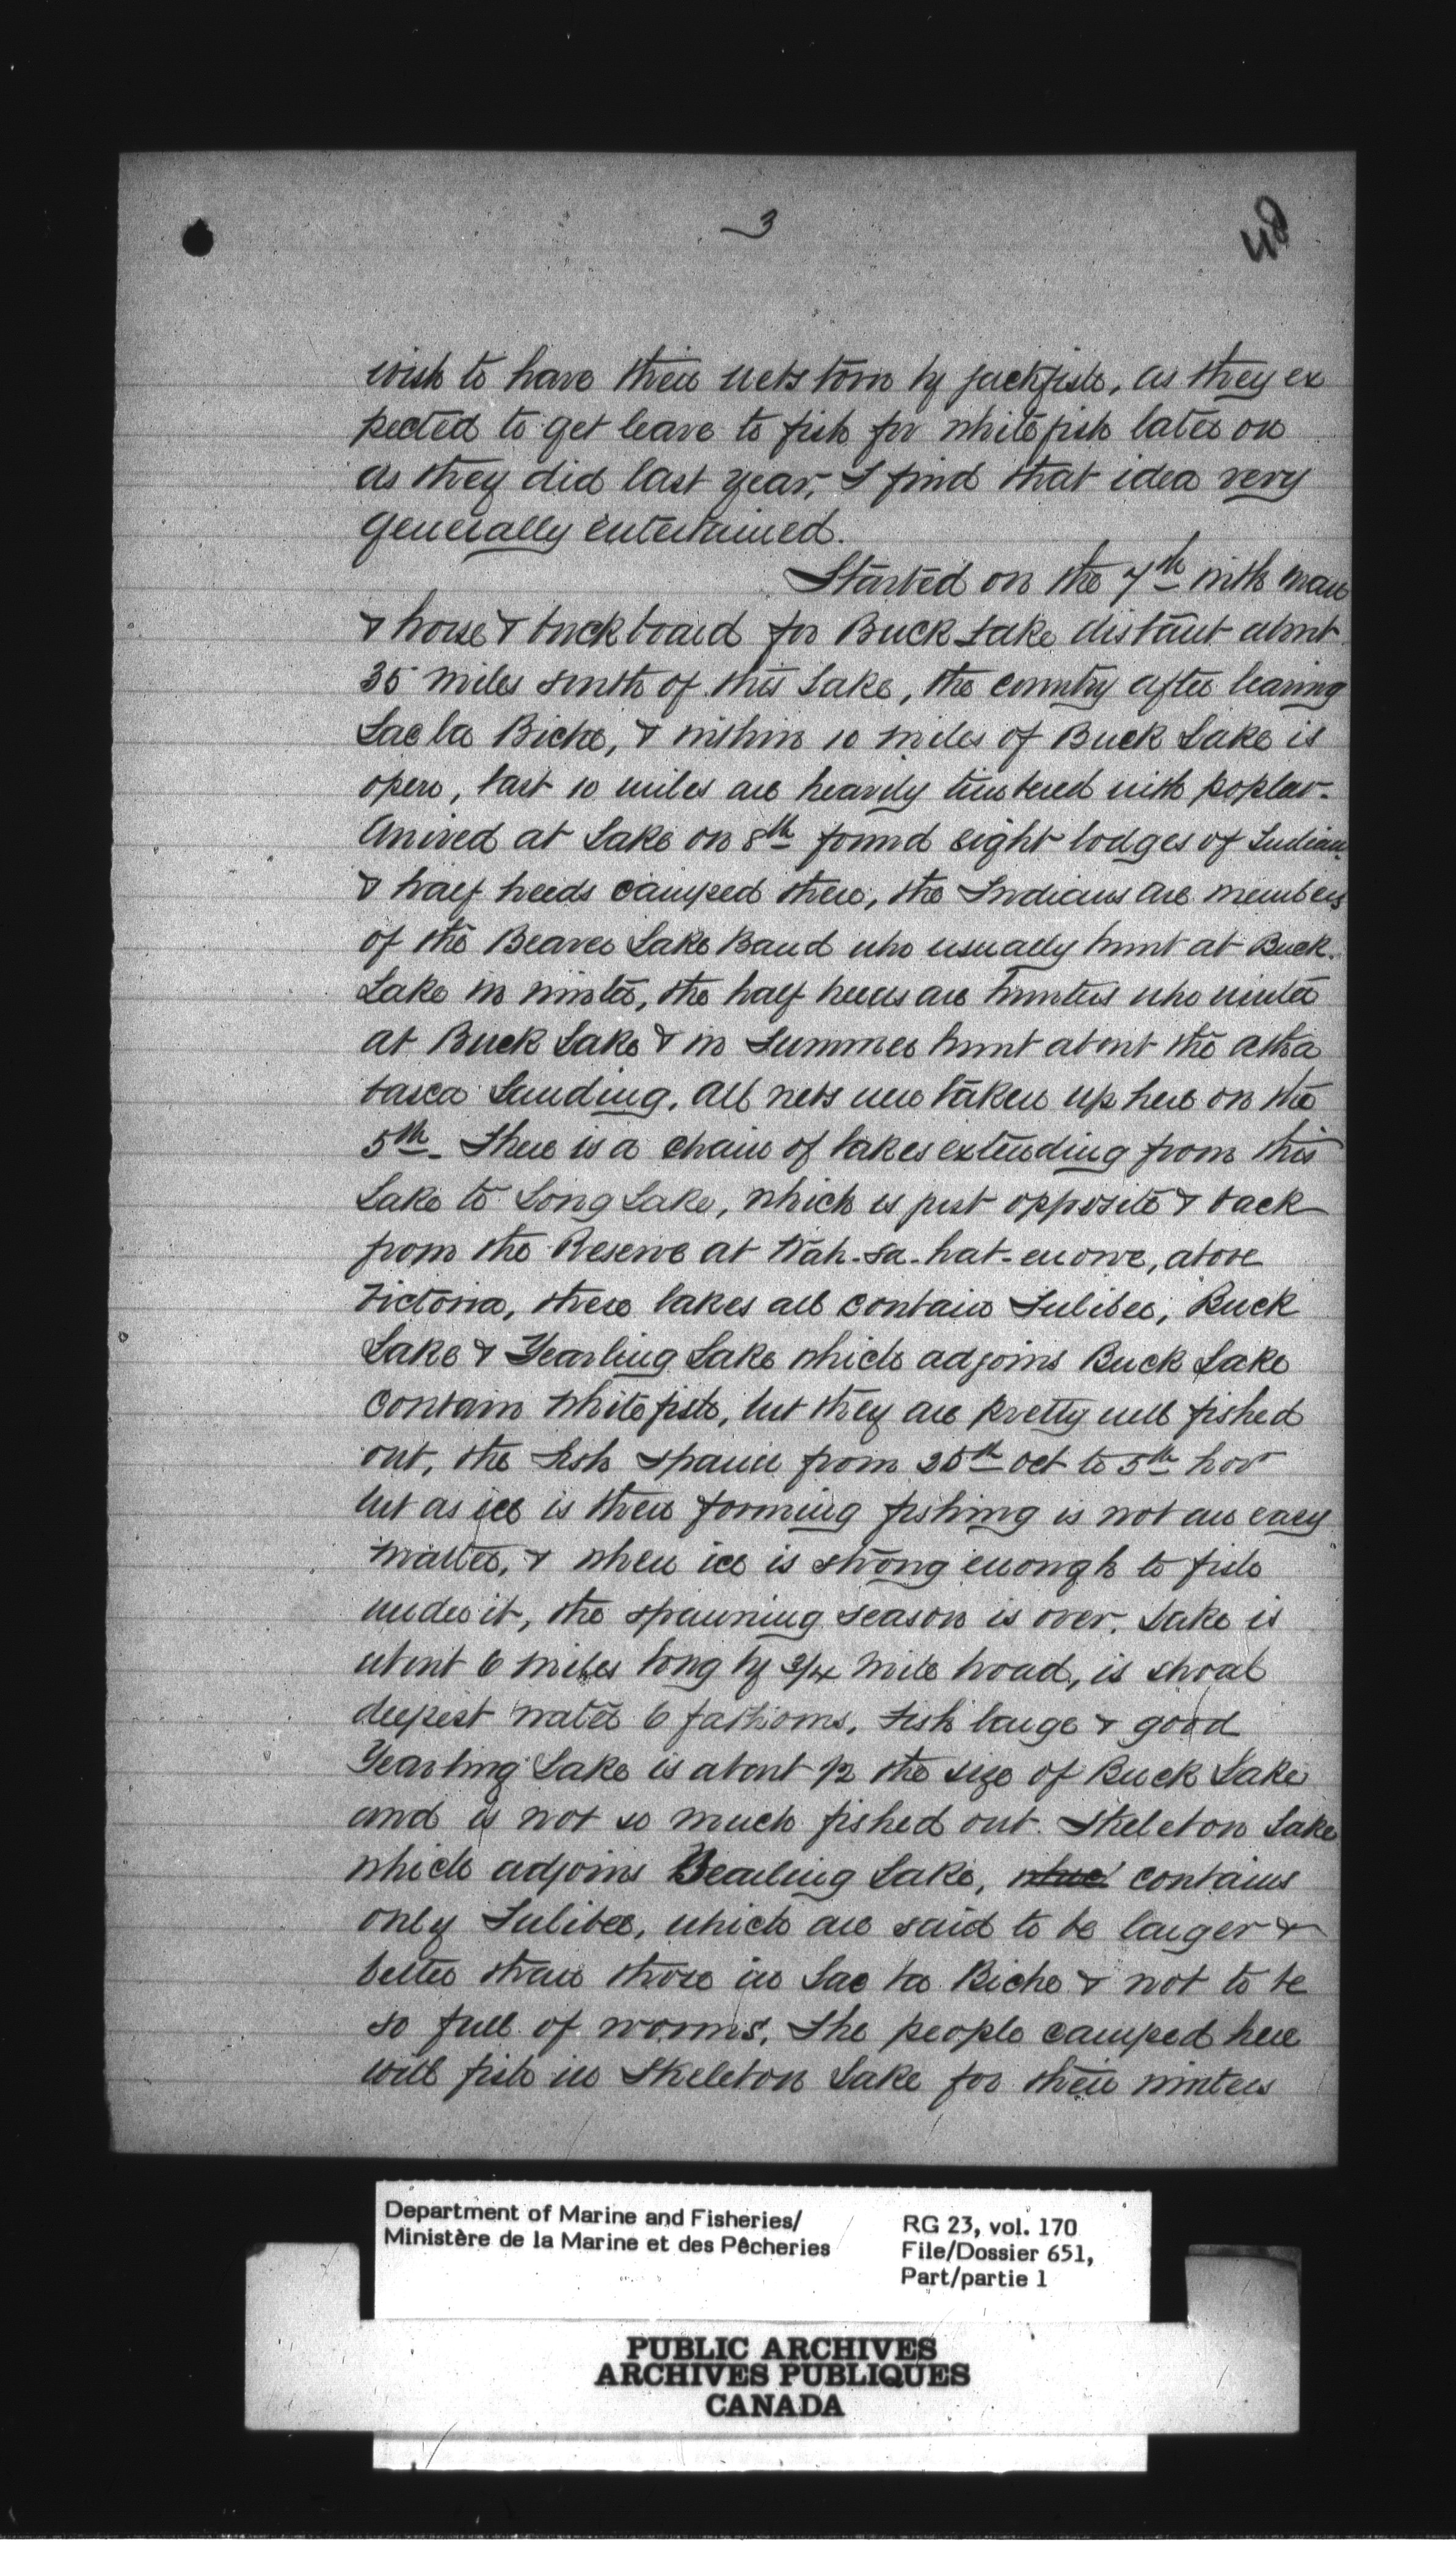 3
48
wish to have their nets torn by jackfish, as they ex
pected to get leave to fish for whitefish later on
as they did last year, I find that idea very
generally entertained.
Started on the 7th with man
& horse & buckboard for Buck Lake distant about
35 miles south of this Lake, the country after leaving
Lac la Biche, & within 10 miles of Buck Lake is
open, last 10 miles are heavily timbered with poplar.
Arrived at Lake on 8th found eight lodges of Indians
& half breeds camped there, the Indians are members
of the Beaver Lake Band who usually hunt at Buck
Lake in winter, the half breeds are hunters who winter
at Buck Lake & in Summer hunt about the Atha
basca Landing. All nets were taken up here on the
5th. There is a chain of lakes extending from this
Lake to Long Lake, which is just opposite & back
from the Reserve at Wah-sa-hat-enowe, above
Victoria, these lakes all contain Tulibee, Buck
Lake & Yearling Lake which adjoins Buck Lake
contain whitefish, but they are pretty well fished
out, the fish spawn from 25th Oct to 5th Nov
but as ice is then forming fishing is not an easy
matter, & when ice is strong enough to fish
under it, the spawning season is over. Lake is
about 6 miles long by 3/4 mile broad, is shoal
deepest water 6 fathoms. Fish large & good
Yearling Lake is about 1/2 the size of Buck Lake
and is not so much fished out. Skeleton Lake
which adjoins Yearling Lake, contains
only Tulibee, which are said to be larger &
better than those in Lac la Biche & not to be
so full of worms. The people camped here
will fish in Skeleton Lake for their winters
Department of Marine and Fisheries/
Ministère de la Marine et des Pêcheries
RG 23, vol. 170
File/Dossier 651,
Part/partie 1
PUBLIC ARCHIVES
ARCHIVES PUBLIQUES
CANADA